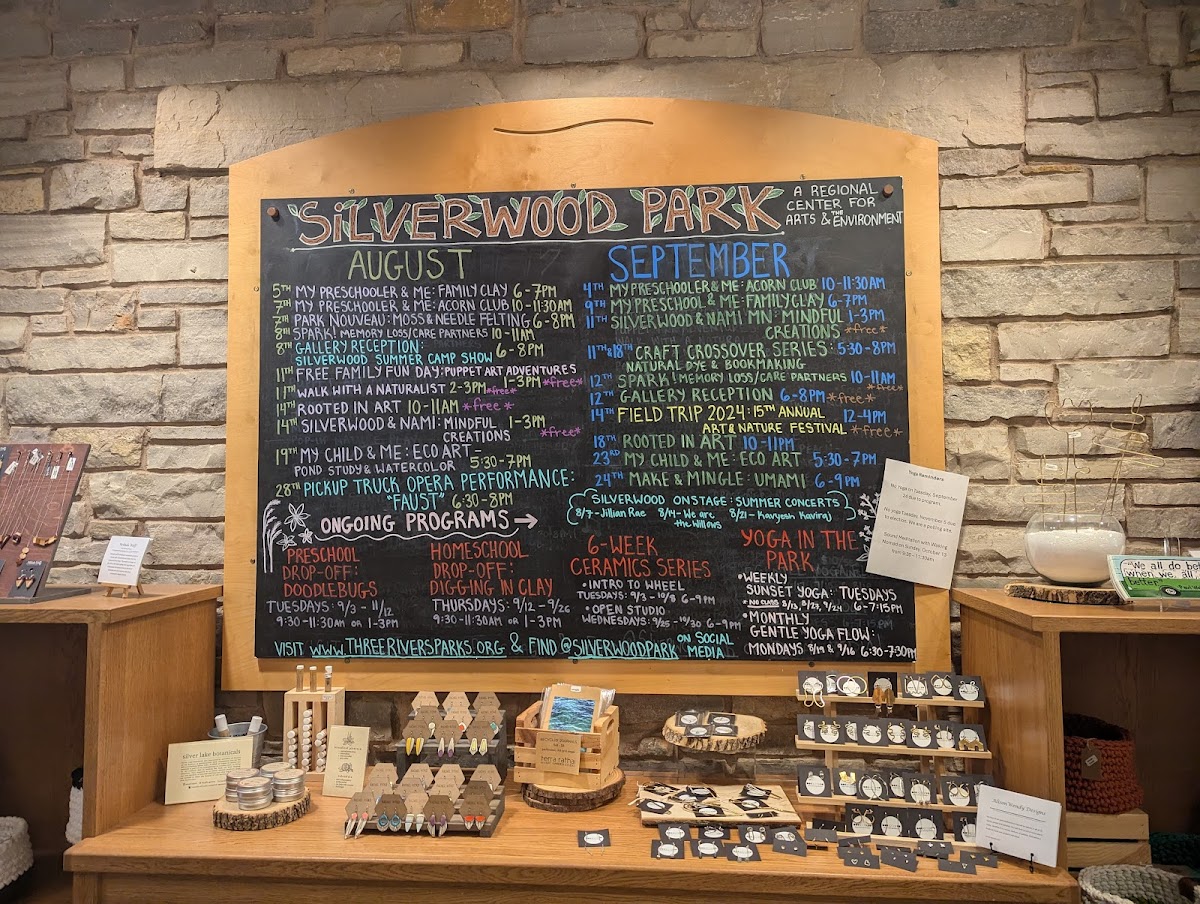 SILVERWOOD PARK
A REGIONAL
CENTER FOR
ARTS & THE ENVIRONMENT
AUGUST
5TH MY PRESCHOOLER & ME: FAMILY CLAY 6-7PM
7TH MY PRESCHOOLER & ME: ACORN CLUB 10-11:30AM
7TH PARK NOUVEAU: MOSS & NEEDLE FELTING 6-8PM
8TH SPARK! MEMORY LOSS/CARE PARTNERS 10-11AM
8TH GALLERY RECEPTION:
SILVERWOOD SUMMER CAMP SHOW 6-8PM
11TH FREE FAMILY FUN DAY: PUPPET ART ADVENTURES
1-3PM *free*
11TH WALK WITH A NATURALIST 2-3PM *free*
14TH ROOTED IN ART 10-11AM *free*
14TH SILVERWOOD & NAMI: MINDFUL 1-3PM
CREATIONS *free*
19TH MY CHILD & ME: ECO ART -
POND STUDY & WATERCOLOR 5:30-7PM
28TH PICKUP TRUCK OPERA PERFORMANCE:
"FAUST" 6:30-8PM
SEPTEMBER
4TH MY PRESCHOOLER & ME: ACORN CLUB 10-11:30AM
9TH MY PRESCHOOL & ME: FAMILY CLAY 6-7PM
11TH SILVERWOOD & NAMI MN: MINDFUL 1-3PM
CREATIONS *free*
11TH & 18TH CRAFT CROSSOVER SERIES: 5:30-8PM
NATURAL DYE & BOOKMAKING
12TH SPARK! MEMORY LOSS/CARE PARTNERS 10-11AM
*free*
12TH GALLERY RECEPTION 6-8PM *free*
14TH FIELD TRIP 2024: 15TH ANNUAL 12-4PM
ART & NATURE FESTIVAL *free*
18TH ROOTED IN ART 10-11PM
23RD MY CHILD & ME: ECO ART 5:30-7PM
24TH MAKE & MINGLE: UMAMI 6-9PM
SILVERWOOD ONSTAGE: SUMMER CONCERTS
8/7 - Jillian Rae 8/14 - We are the Willows 8/21 - Kavyesh Kaviraj
ONGOING PROGRAMS →
PRESCHOOL
DROP-OFF:
DOODLEBUGS
TUESDAYS: 9/3 - 11/12
9:30-11:30AM OR 1-3PM
HOMESCHOOL
DROP-OFF:
DIGGING IN CLAY
THURSDAYS: 9/12 - 9/26
9:30-11:30AM OR 1-3PM
6-WEEK
CERAMICS SERIES
• INTRO TO WHEEL
TUESDAYS: 9/3 - 10/8 6-9PM
• OPEN STUDIO
WEDNESDAYS: 9/25 - 10/30 6-9PM
YOGA IN THE
PARK
• WEEKLY
SUNSET YOGA: TUESDAYS
* NO CLASS 8/13, 8/27, 9/24 6-7:15PM
• MONTHLY
GENTLE YOGA FLOW:
MONDAYS 8/19 & 9/16 6:30-7:30PM
VISIT WWW.THREERIVERSPARKS.ORG & FIND @SILVERWOODPARK ON SOCIAL
MEDIA
Yoga Reminders
No Yoga on Tuesday, September
No yoga Tuesday, November 5 due
to election. We are a polling site.
Sound Meditation with
Sunday, October 13
silver lake botanicals
"We all do better
when we all
better